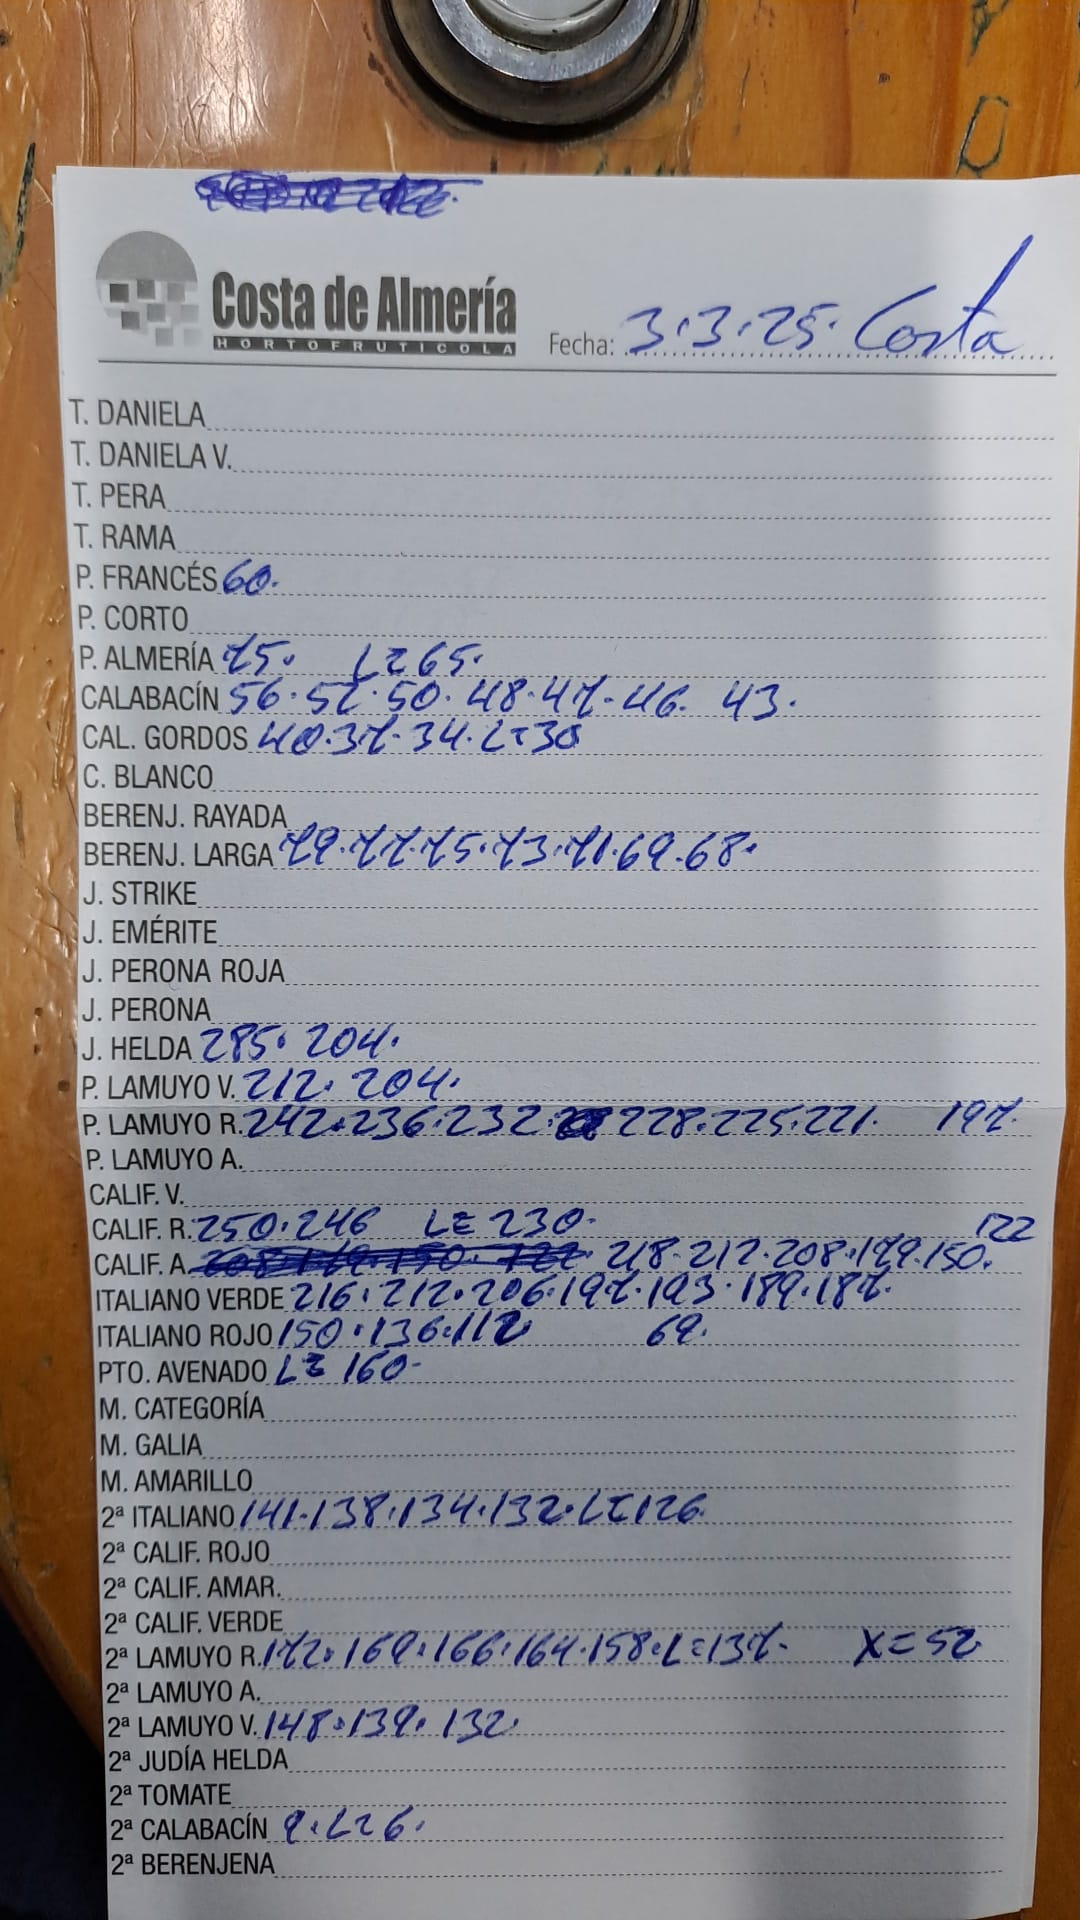 Costa de Almería
HORTOFRUTICOLA
Fecha: 3.3.25. Costa
T. DANIELA
T. DANIELA V.
T. PERA
T. RAMA
P. FRANCÉS 60.
P. CORTO
P. ALMERÍA 75. L=65.
CALABACÍN 56.52.50.48.47.46. 43.
CAL. GORDOS 40.37.34.L=30
C. BLANCO
BERENJ. RAYADA
BERENJ. LARGA 79.77.75.73.71.69.68.
J. STRIKE
J. EMÉRITE
J. PERONA ROJA
J. PERONA
J. HELDA 285. 204.
P. LAMUYO V. 212. 204.
P. LAMUYO R. 242.236.232. 228.225.221. 197.
P. LAMUYO A.
CALIF. V.
CALIF. R. 250.246 L=230.
122
CALIF. A. 218.212.208.179.150.
ITALIANO VERDE 216.212.206.197.193.189.187.
ITALIANO ROJO 150.136.112 69.
PTO. AVENADO L= 160.
M. CATEGORÍA
M. GALIA
M. AMARILLO
2ª ITALIANO 141.138.134.132.L=126.
2ª CALIF. ROJO
2ª CALIF. AMAR.
2ª CALIF. VERDE
2ª LAMUYO R. 172.169.166.164.158.L=137. X=52.
2ª LAMUYO A.
2ª LAMUYO V. 148.139. 132.
2ª JUDÍA HELDA
2ª TOMATE
2ª CALABACÍN 9.L=6.
2ª BERENJENA